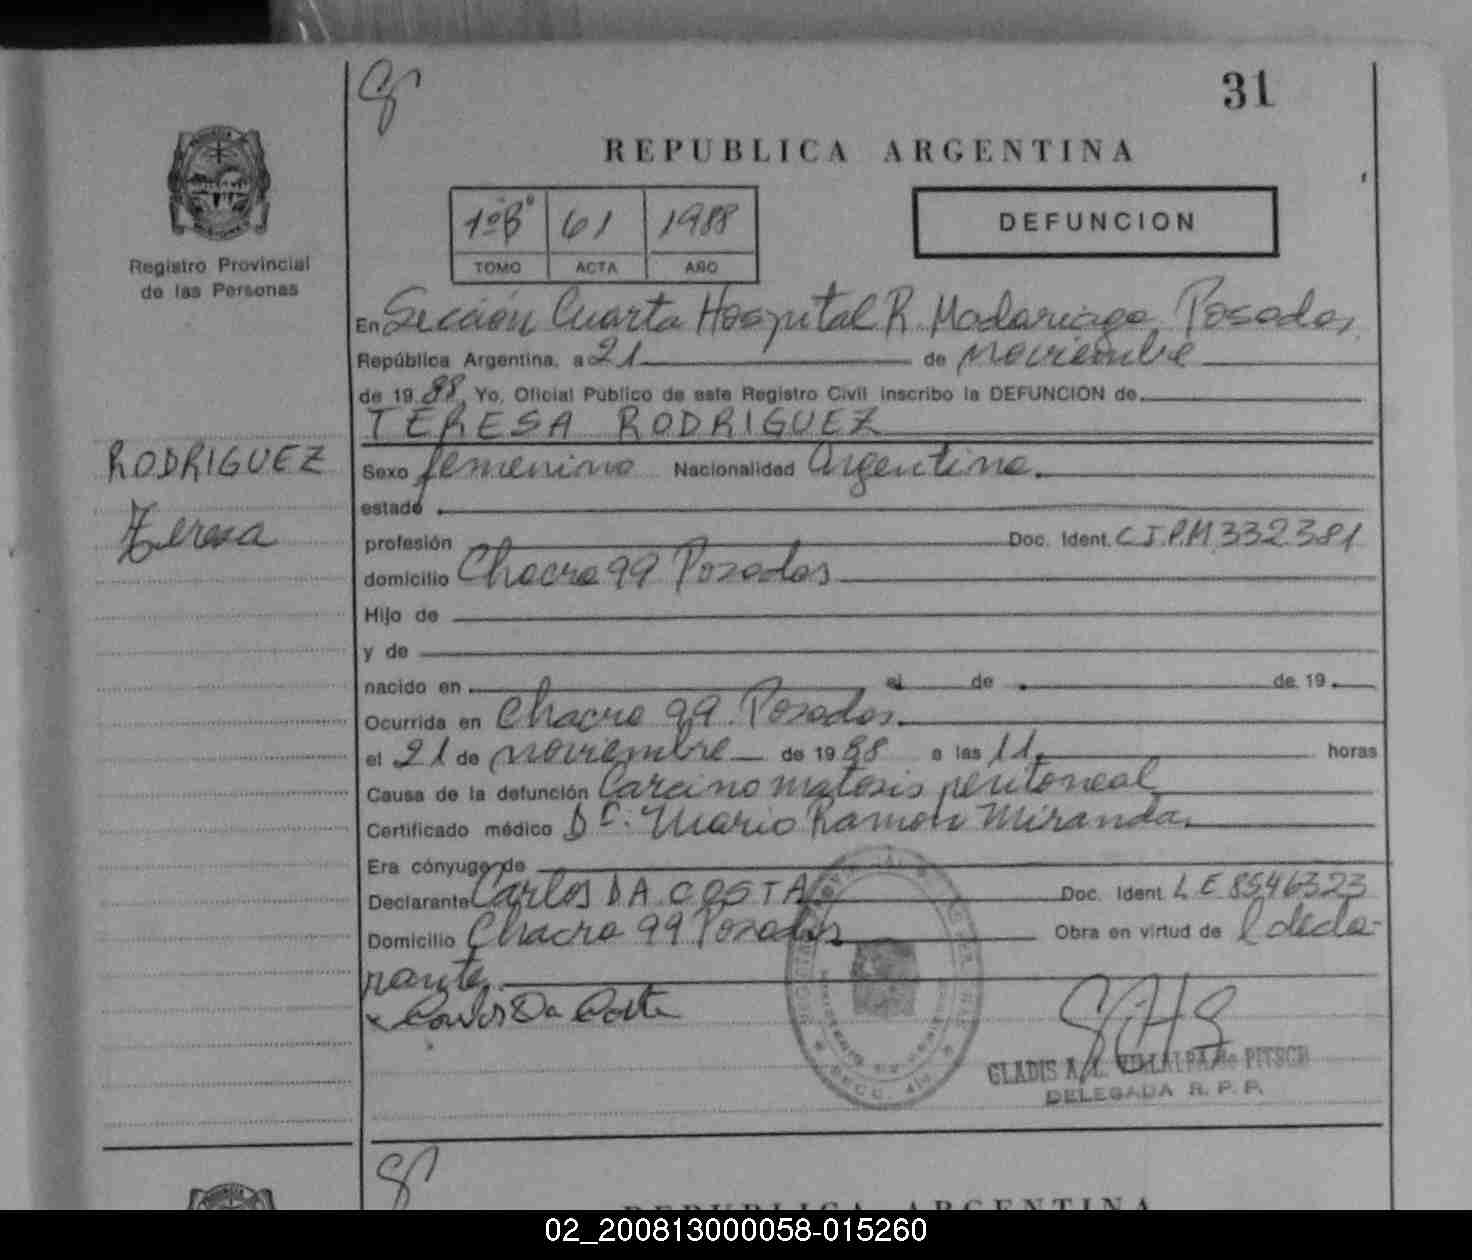 31
REPUBLICA ARGENTINA
1º Bº 61 1988
TOMO ACTA AÑO
DEFUNCION
Registro Provincial
de las Personas
En Sección Cuarta Hospital R. Madariaga Posadas,
República Argentina, a 21 de noviembre
de 19 88 Yo, Oficial Público de este Registro Civil inscribo la DEFUNCION de
TERESA RODRIGUEZ
RODRIGUEZ
Teresa
Sexo femenino Nacionalidad Argentina.
estado
profesión Doc. Ident. C.I.P.M. 332.381
domicilio Chacra 99 Posadas
Hijo de
y de
nacido en el de de 19
Ocurrida en Chacra 99. Posadas.
el 21 de noviembre de 19 88 a las 11. horas
Causa de la defunción Carcinomatosis peritoneal
Certificado médico Dr: Mario Ramon Miranda.
Era cónyuge de
Declarante Carlos DA COSTA Doc. Ident. L E 8546323
Domicilio Chacra 99 Posadas Obra en virtud de l decla-
rante.
Carlos Da Costa
GLADIS A. L. VILLALPA de PITSCH
DELEGADA R. P. P.
REPUBLICA ARGENTINA
02_200813000058-015260